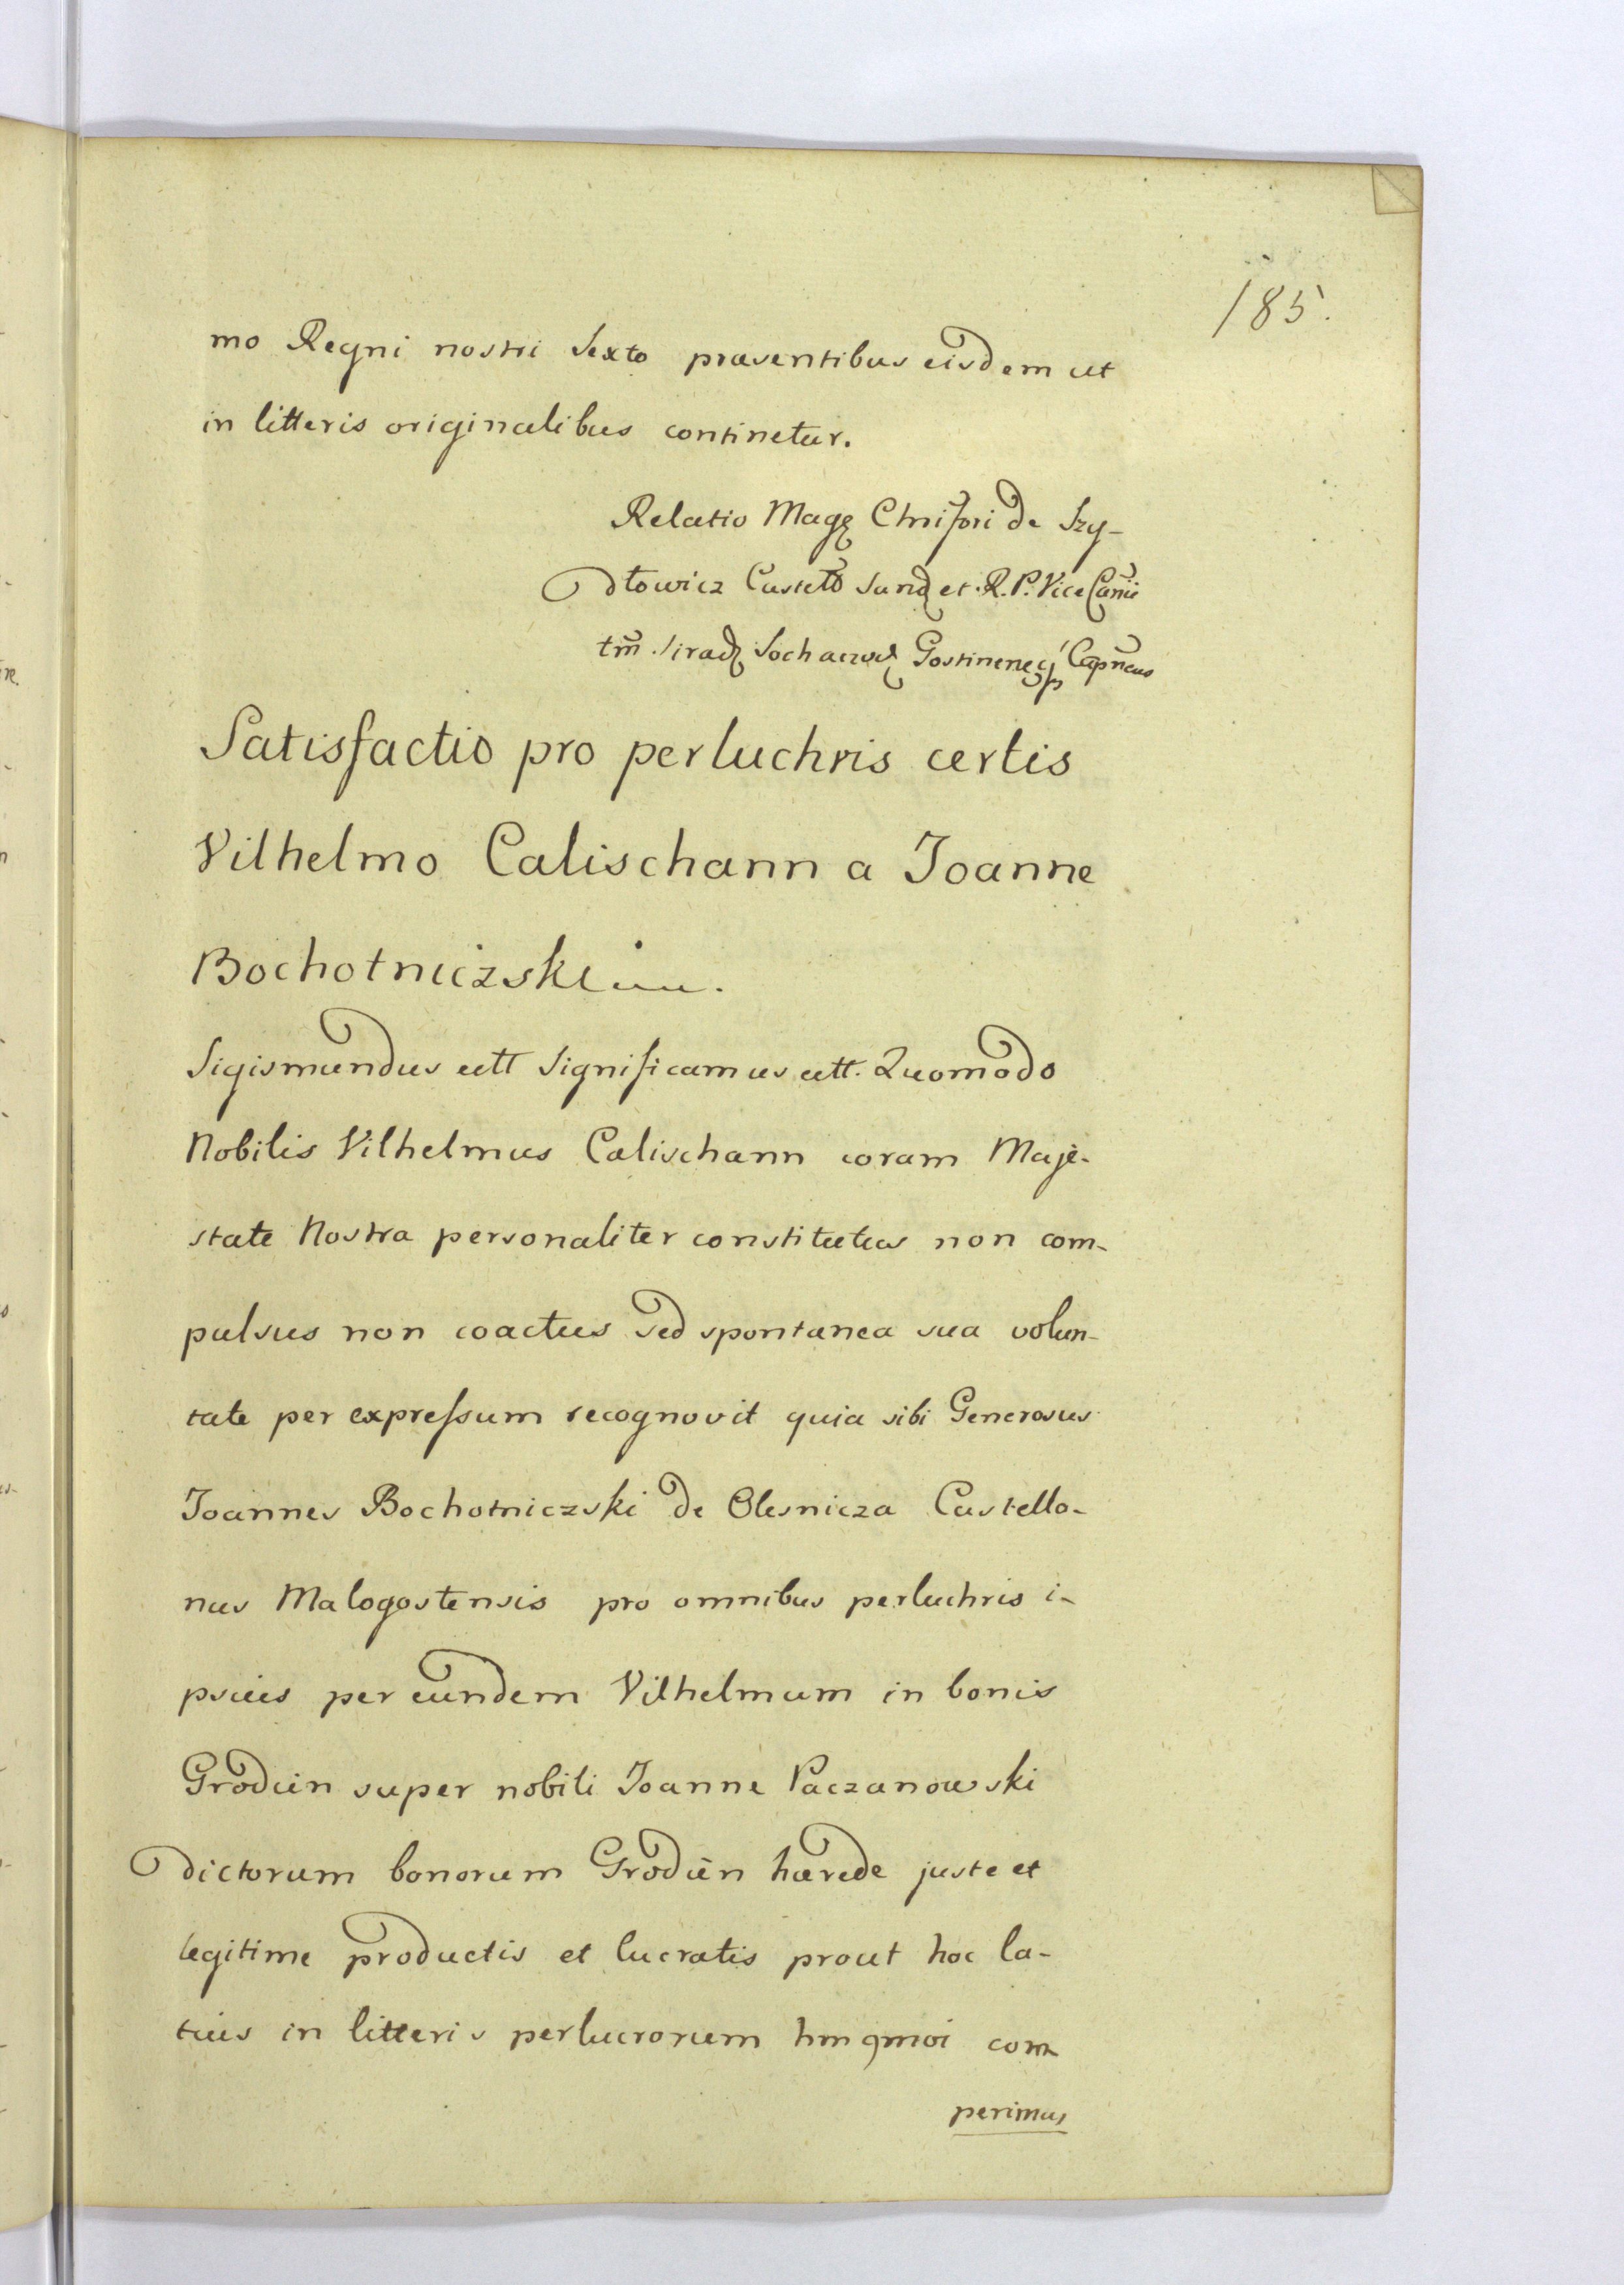 185.
mo Regni nostri Sexto praesentibus eisdem ut
in litteris originalibus continetur.
Relatio Magq Chrisfori de Szy-
dłowicz Castell Sand et. R. P. Vice Canrii
tm̃ Sirad Sochaczov Gostinen Capneus
Satisfactio pro perluchris certis
Vilhelmo Calischann a Joanne
Bochotniczski.
Sigismundus ett Significamus ett. Quomodo
Nobilis Vilhelmus Calischann coram Maje-
state Nostra personaliter constitutus non com-
pulsus non coactus sed spontanea sua volun-
tate per expressum recognovit quia sibi Generosus
Joannes Bochotniczski de Olesnicza Castello-
nus Malogostensis pro omnibus perluchris i-
psius per eundem Vilhelmum in bonis
Grodün super nobili Joanne Paczanowski
dictorum bonorum Grodün haerede juste et
legitime productis et lucratis prout hoc la-
tius in litteris perlucrorum hm qmoi com
perimus